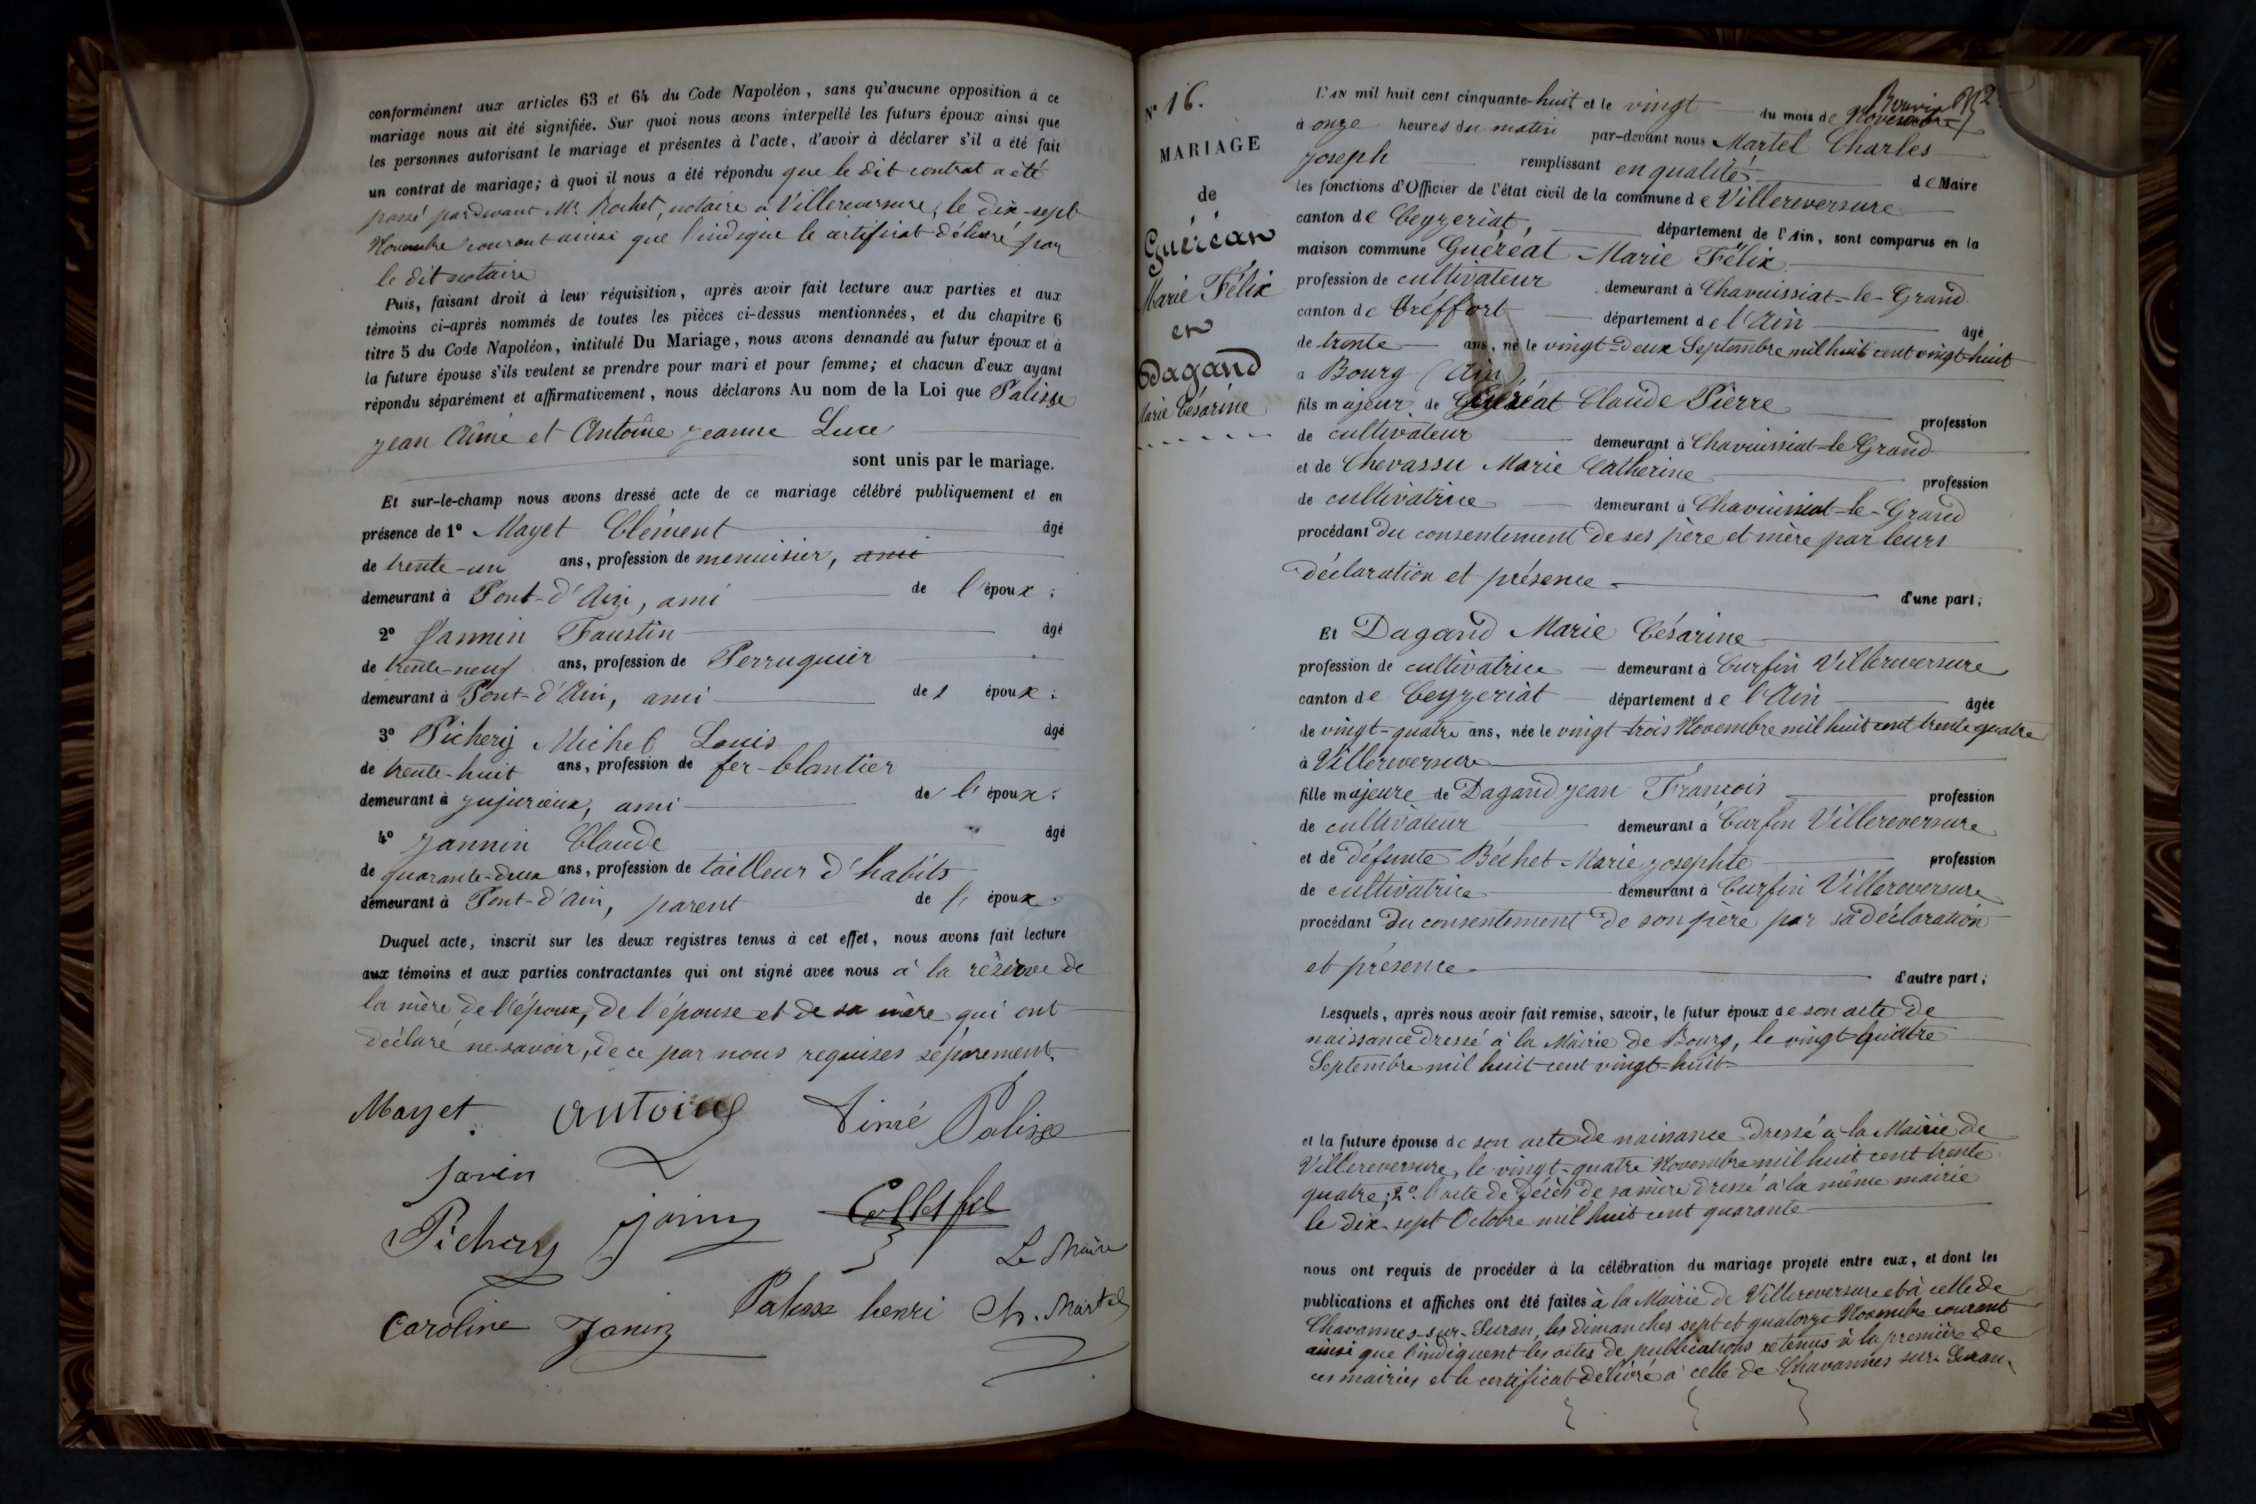 conformément aux articles 63 et 64 du Code Napoléon, sans qu'aucune opposition à ce
mariage nous ait été signifiée. Sur quoi nous avons interpellé les futurs époux ainsi que
les personnes autorisant le mariage et présentes à l'acte, d'avoir à déclarer s'il a été fait
un contrat de mariage; à quoi il nous a été répondu que le dit contrat a été
passé pardevant Mr. Rochet, notaire à Villereversure, le dix-sept
Novembre courant ainsi que l'indique le certificat délivré par
le dit notaire
Puis, faisant droit à leur réquisition, après avoir fait lecture aux parties et aux
témoins ci-après nommés de toutes les pièces ci-dessus mentionnées, et du chapitre 6
titre 5 du Code Napoléon, intitulé Du Mariage, nous avons demandé au futur époux et à
la future épouse s'ils veulent se prendre pour mari et pour femme; et chacun d'eux ayant
répondu séparément et affirmativement, nous déclarons Au nom de la Loi que Palisse
jean Aimé et Antoine jeanne Luce
sont unis par le mariage.
Et sur-le-champ nous avons dressé acte de ce mariage célébré publiquement et en
présence de 1° Mayet Clément âgé
de trente-un ans, profession de menuisier, ami
demeurant à Pont-d'Ain, ami de l'époux;
2° Jannin Faustin âgé
de trente-neuf ans, profession de Perruquier
demeurant à Pont-d'Ain, ami de l époux;
3° Pichery Michel Louis âgé
de trente-huit ans, profession de fer-blantier
demeurant à jujurieux, ami de l'époux;
4° Jannin Claude âgé
de quarante-deux ans, profession de tailleur d'habits
demeurant à Pont-d'Ain, parent de l'époux.
Duquel acte, inscrit sur les deux registres tenus à cet effet, nous avons fait lecture
aux témoins et aux parties contractantes qui ont signé avec nous à la réserve de
la mère de l'époux, de l'épouse et de sa mère qui ont
déclaré ne savoir, de ce par nous requises séparement.
Mayet Antoine Aimé Palisse
Janin
Pichery Janin
Le Maire
Caroline Janin Palisse henri Ch. Martel
N° 16.
MARIAGE
de
Guéréan
Marie Félix
et
Dagand
Marie Césarine
L'AN mil huit cent cinquante-huit et le vingt du mois de Novembre
à onze heures du matin par-devant nous Martel Charles
joseph remplissant en qualité de Maire
les fonctions d'Officier de l'état civil de la commune de Villereversure
canton de Ceyzeriat, département de l'Ain, sont comparus en la
maison commune Guéréat Marie Félix
profession de cultivateur demeurant à Chavuissiat-le-Grand
canton de Tréffort département de l'Ain âgé
de trente ans, né le vingt-deux Septembre mil huit cent vingt-huit
à Bourg (Ain)
fils majeur de Guéréat Claude Pierre profession
de cultivateur demeurant à Chavuissiat-le-Grand
et de Chevassu Marie Catherine profession
de cultivatrice demeurant à Chavuissiat-le-Grand
procédant du consentement de ses père et mère par leurs
déclaration et présence d'une part;
Et Dagand Marie Césarine
profession de cultivatrice demeurant à Curfin Villereversure
canton de Ceyzeriat département de l'Ain âgée
de vingt-quatre ans, née le vingt-trois Novembre mil huit cent trente quatre
à Villereversure
fille majeure de Dagand jean François profession
de cultivateur demeurant à Curfin Villereversure
et de défunte Béchet Marie josephte profession
de cultivatrice demeurant à Curfin Villereversure
procédant du consentement de son père par sa déclaration
et présence d'autre part;
Lesquels, après nous avoir fait remise, savoir, le futur époux de son acte de
naissance dressé à la Mairie de Bourg, le vingt-quatre
Septembre mil huit cent vingt-huit
et la future épouse de son acte de naissance dressé à la Mairie de
Villereversure, le vingt-quatre Novembre mil huit cent trente
quatre; 2°. l'acte de décès de sa mère dressé à la même mairie
le dix-sept Octobre mil huit cent quarante
nous ont requis de procéder à la célébration du mariage projeté entre eux, et dont les
publications et affiches ont été faites à la Mairie de Villereversure et à celle de
Chavannes-sur-Suran, les dimanches sept et quatorze Novembre courant
ainsi que l'indiquent les actes de publications retenus à la première de
ces mairies et le certificat délivré à celle de Chavannes sur Suran